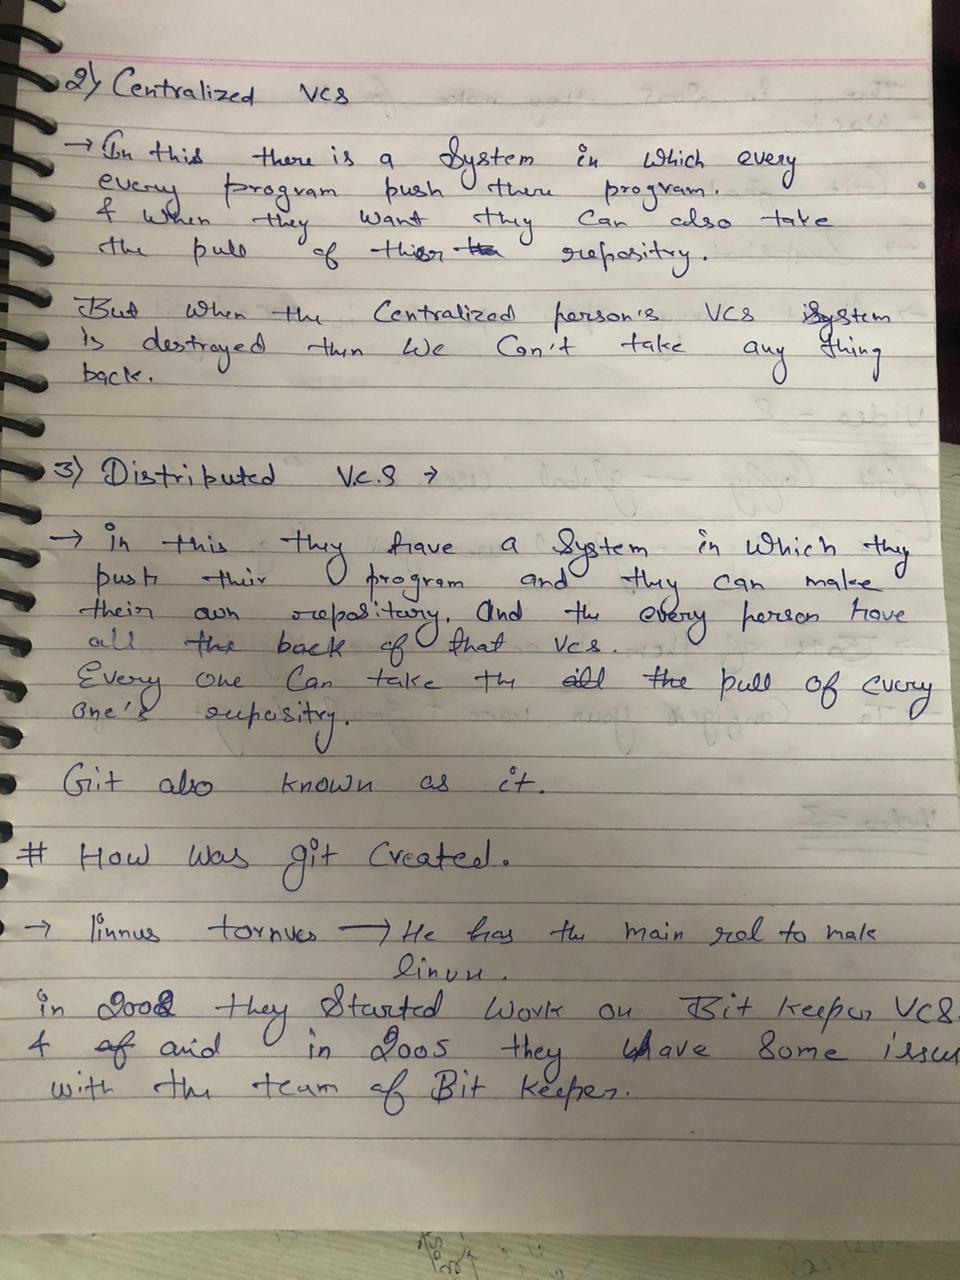 2) Centralized VCS
→ In this there is a System in which every
every program push there program.
& when they want they can also take
the pull of thier repositry.
But when the Centralized person's VCS System
is destroyed then we Can't take any thing
back.
3) Distributed V.C.S →
→ in this they have a System in which they
push their program and they can make
their own repositary. And the every person have
all the back of that VCS.
Every one Can take the all the pull of every
one's repositry.
Git also known as it.
# How was git Created.
→ linnus tornves → He has the main rol to make
linux.
in 2002 they Started work on Bit keeper VCS.
& and in 2005 they have Some issue
with the team of Bit keeper.